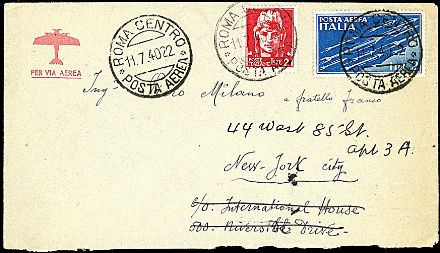 ROMA CENTRO
11.7.40 22
* POSTA AEREA *
ROMA CENTRO
POSTA AEREA
POSTA AEREA
ITALIA
PER VIA AEREA
Milano e fratello Franco
44 West 85 St.
apt 3 A.
New-York city
c/o International House
500 Riverside Drive